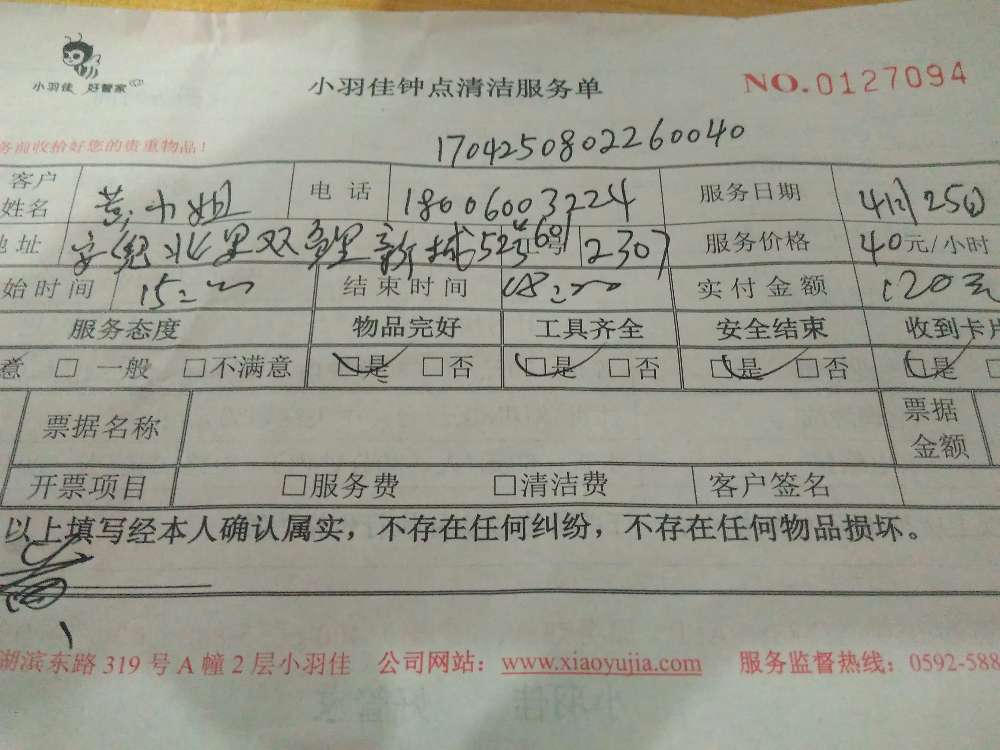 小羽佳 好管家
小羽佳钟点清洁服务单
NO.0127094
务前收拾好您的贵重物品！
1704250802260040
客户姓名 黄小姐 电话 18006003224 服务日期 4月25日
地址 北里双鲤新城 2307 服务价格 40元/小时
始时间 15:00 结束时间 18:00 实付金额 120元
服务态度 物品完好 工具齐全 安全结束 收到卡片
意 □ 一般 □不满意 □是 □否 □是 □否 □是 □否 □是
票据名称 票据金额
开票项目 □服务费 □清洁费 客户签名
以上填写经本人确认属实，不存在任何纠纷，不存在任何物品损坏。
湖滨东路319号A幢2层小羽佳 公司网站：www.xiaoyujia.com 服务监督热线：0592-588